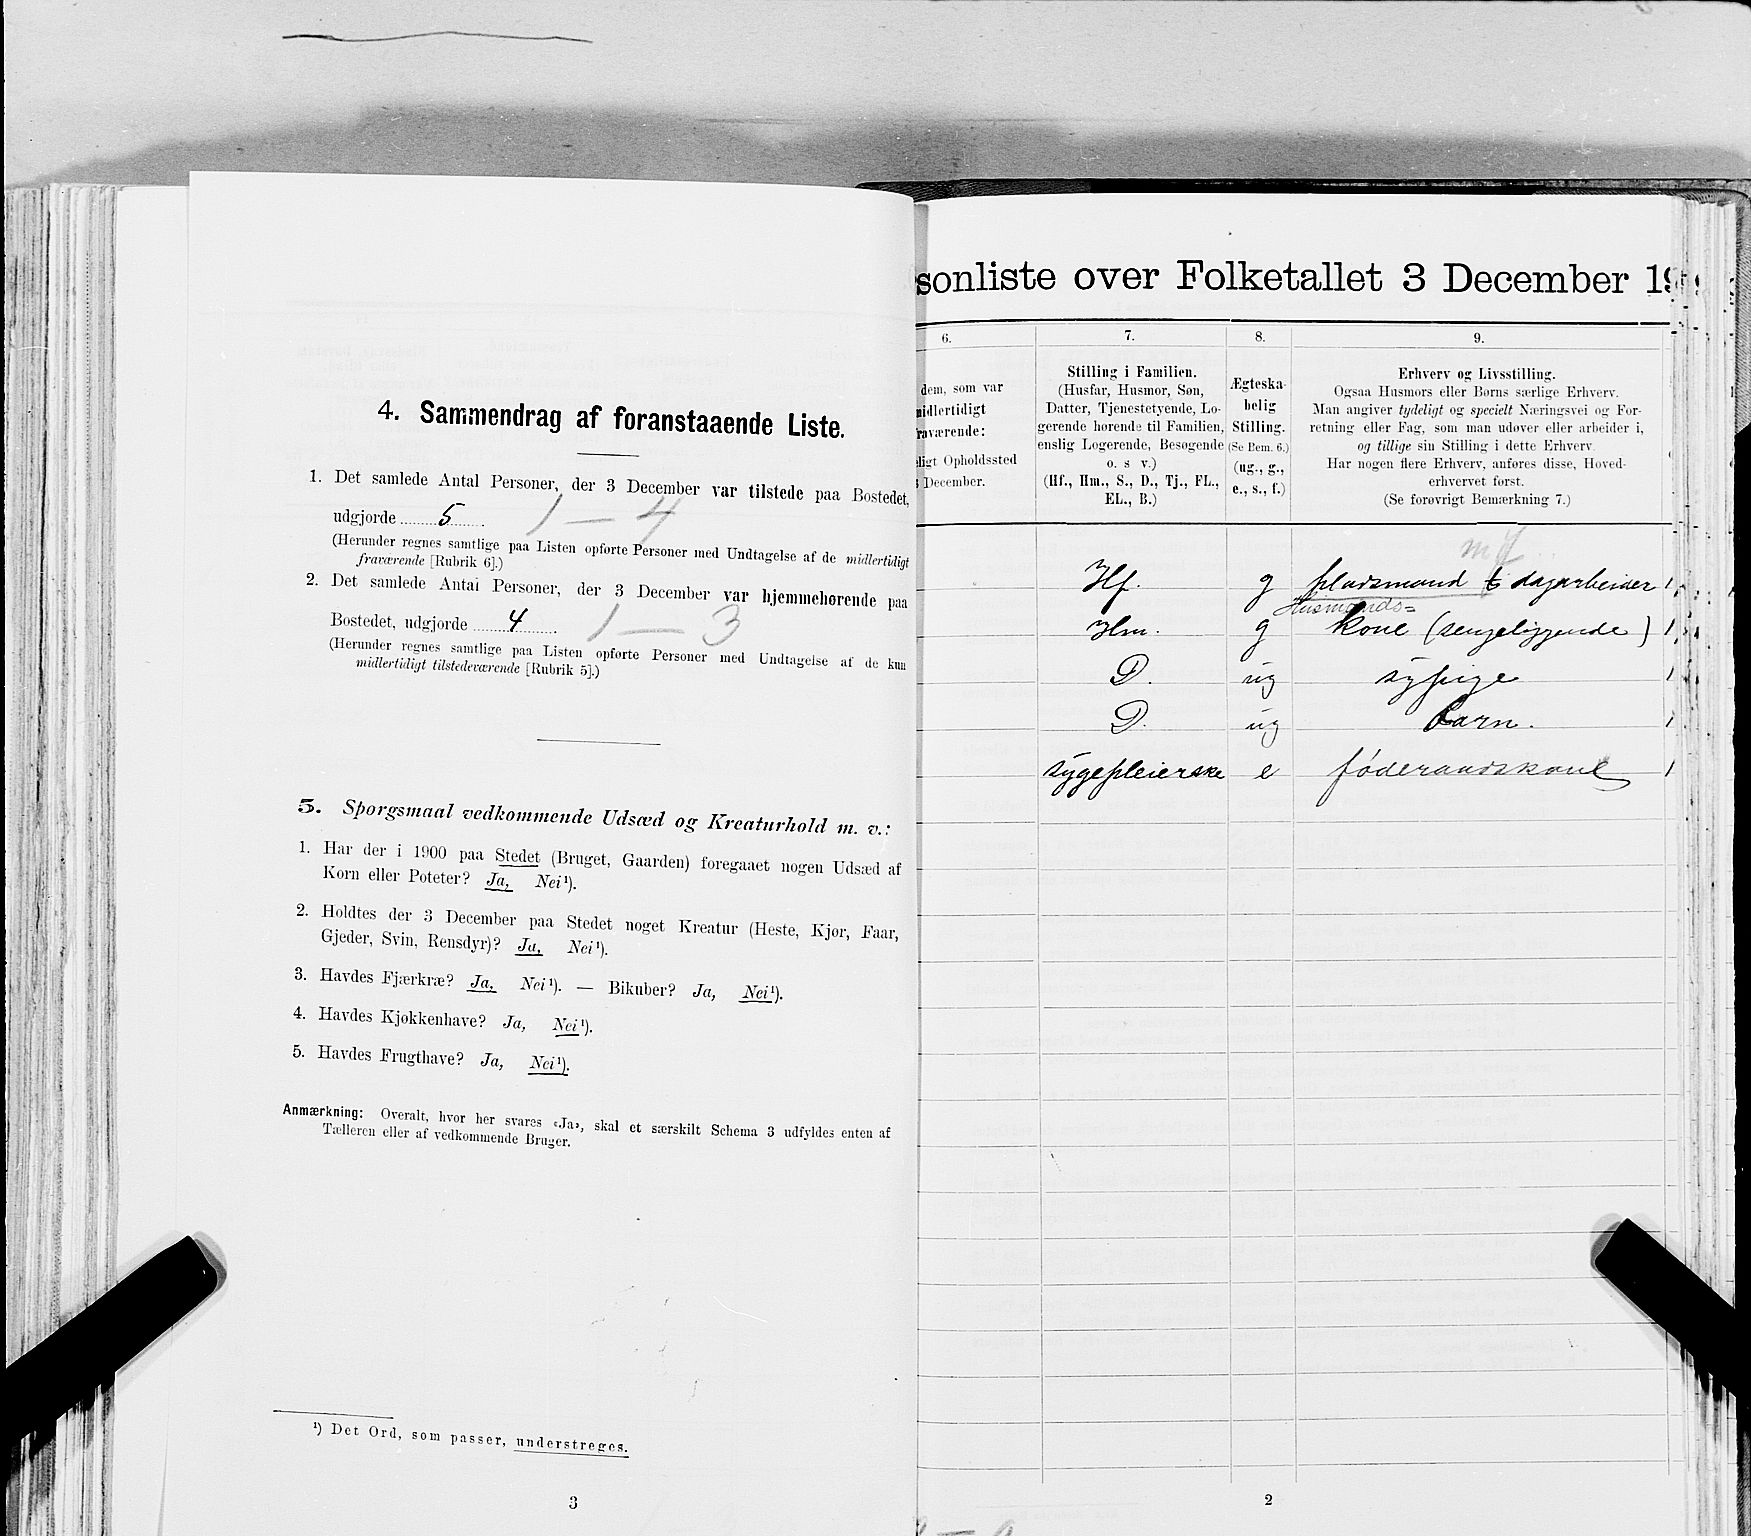 4. Sammendrag af foranstaaende Liste.
1. Det samlede Antal Personer, der 3 December var tilstede paa Bostedet,
udgjorde 5 1 — 4
(Herunder regnes samtlige paa Listen opførte Personer med Undtagelse af de midlertidigt
fraværende [Rubrik 6].)
2. Det samlede Antal Personer, der 3 December var hjemmehørende paa
Bostedet, udgjorde 4 1 — 3
(Herunder regnes samtlige paa Listen opførte Personer med Undtagelse af de kun
midlertidigt tilstedeværende [Rubrik 5].)
5. Spørgsmaal vedkommende Udsæd og Kreaturhold m. v.:
1. Har der i 1900 paa Stedet (Bruget, Gaarden) foregaaet nogen Udsæd af
Korn eller Poteter? Ja, Nei¹).
2. Holdtes der 3 December paa Stedet noget Kreatur (Heste, Kjør, Faar,
Gjeder, Svin, Rensdyr)? Ja, Nei¹).
3. Havdes Fjærkræ? Ja, Nei¹). — Bikuber? Ja, Nei¹).
4. Havdes Kjøkkenhave? Ja, Nei¹).
5. Havdes Frugthave? Ja, Nei¹).
Anmærkning: Overalt, hvor her svares «Ja», skal et særskilt Schema 3 udfyldes enten af
Tælleren eller af vedkommende Bruger.
¹) Det Ord, som passer, understreges.
3
sonliste over Folketallet 3 December 19
6.
dem, som var
midlertidigt
fraværende:
ligt Opholdssted
December.
7.
Stilling i Familien.
(Husfar, Husmor, Søn,
Datter, Tjenestetyende, Lo-
gerende hørende til Familien,
enslig Logerende, Besøgende
o. s v.)
(Hf., Hm., S., D., Tj., FL.,
EL., B.)
8.
Ægteska-
belig
Stilling.
(Se Bem. 6.)
(ug., g.,
e., s., f.)
9.
Erhverv og Livsstilling.
Ogsaa Husmors eller Børns særlige Erhverv.
Man angiver tydeligt og specielt Næringsvei og For-
retning eller Fag, som man udøver eller arbeider i,
og tillige sin Stilling i dette Erhverv.
Har nogen flere Erhverv, anføres disse, Hoved-
erhvervet først.
(Se forøvrigt Bemærkning 7.)
Hf. g pladsmand & dagarbeider 1
Husmands=
Hm. g kone (sengeliggende) 1
D. ug sypige 1
D. ug barn. 1
sygepleierske e føderaadskone 1
2